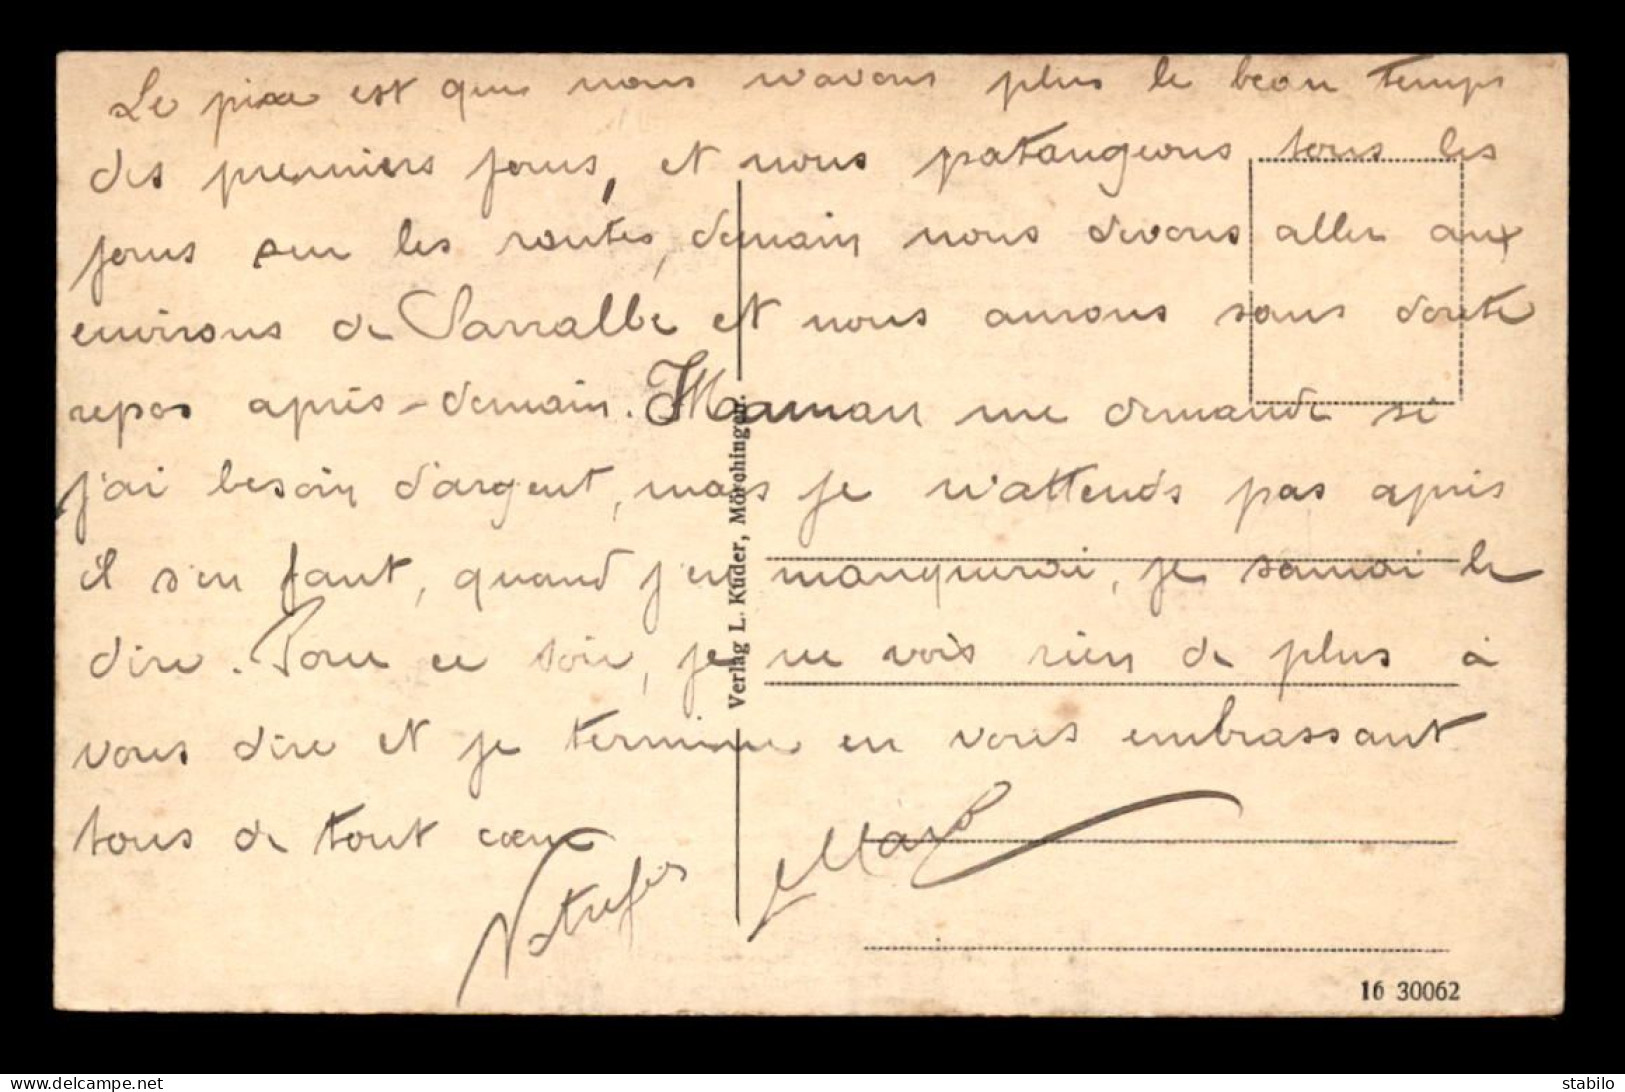 Le pire est que nous n'avons plus le beau temps
des premiers jours, et nous pataugeons tous les
jours sur les routes, demain nous devons aller aux
environs de Sarralbe et nous aurons sans doute
repos après-demain. Maman me demande si
j'ai besoin d'argent, mais je n'attends pas après
il s'en faut, quand j'en manquerai, je saurai le
dire. Pour ce soir, je ne vois rien de plus à
vous dire et je termine en vous embrassant
tous de tout cœur
Votre fils
Verlag L. Kuder, Mörchingen.
16 30062
delcampe.net
stabilo